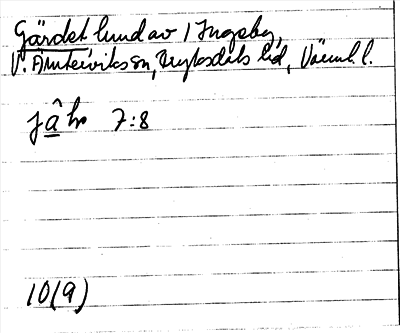 Gärdet lund av / Ingsby,
V. Ämterviks sn, Fryksdals hd, Värml. l.
jâhr 7:8
10(9)